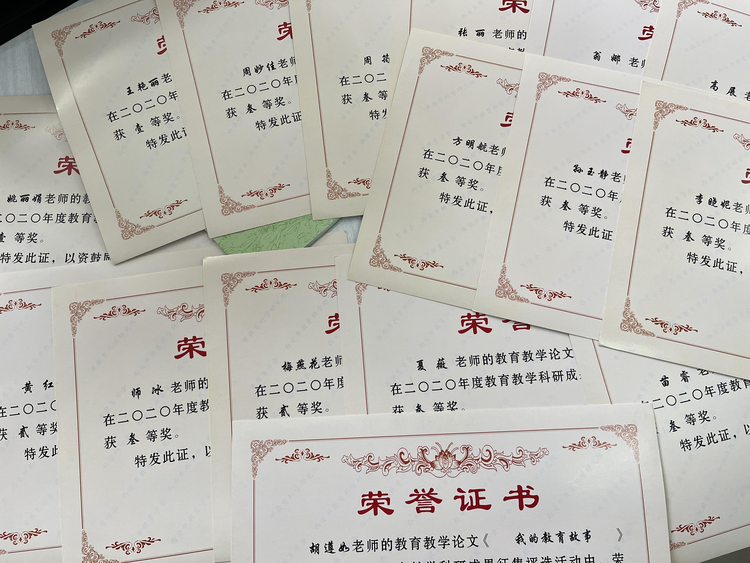 荣
王艳丽老
在二〇二〇年
获 壹 等奖。
特发此证
周妙佳老
在二〇二〇年度
获 叁 等奖。
特发此证
荣
周
在二〇
获 叁
特
荣
张丽老师的
翁娜老
荣
高展老
荣
姚丽娟老师的教
二〇二〇年度教育教
壹 等奖。
特发此证,以资鼓励
方明毓老师
在二〇二〇年度
获 叁 等奖。
特发此证,
孙玉静老
在二〇二〇年度
获 叁 等奖。
特发此证,
李晓妮老师
在二〇二〇年度教
获 叁 等奖。
特发此证,
黄红
在二〇二〇年
获 贰 等奖。
特发此
荣
师冰 老师的
在二〇二〇年度教
获 叁 等奖。
特发此证,以
荣
梅燕花老师
在二〇二〇年度
获 贰 等奖。
荣誉
夏薇 老师的教育教学论文
在二〇二〇年度教育教学科研成
获 叁 等奖。
苗睿 老师的
二〇二〇年度教
叁 等奖。
特发此证,以
荣誉证书
胡遵如老师的教育教学论文《 我的教育故事 》